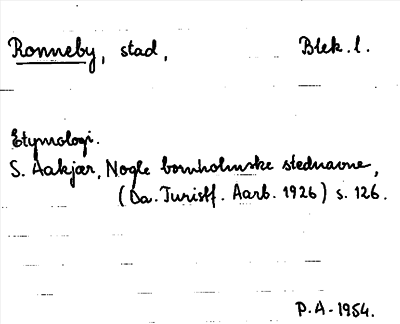 Ronneby, stad, Blek. l.
Etymologi.
S. Aakjær, Nogle bornholmske stednavne,
(Da. Turistf. Aarb. 1926) s. 126.
P.A - 1954.